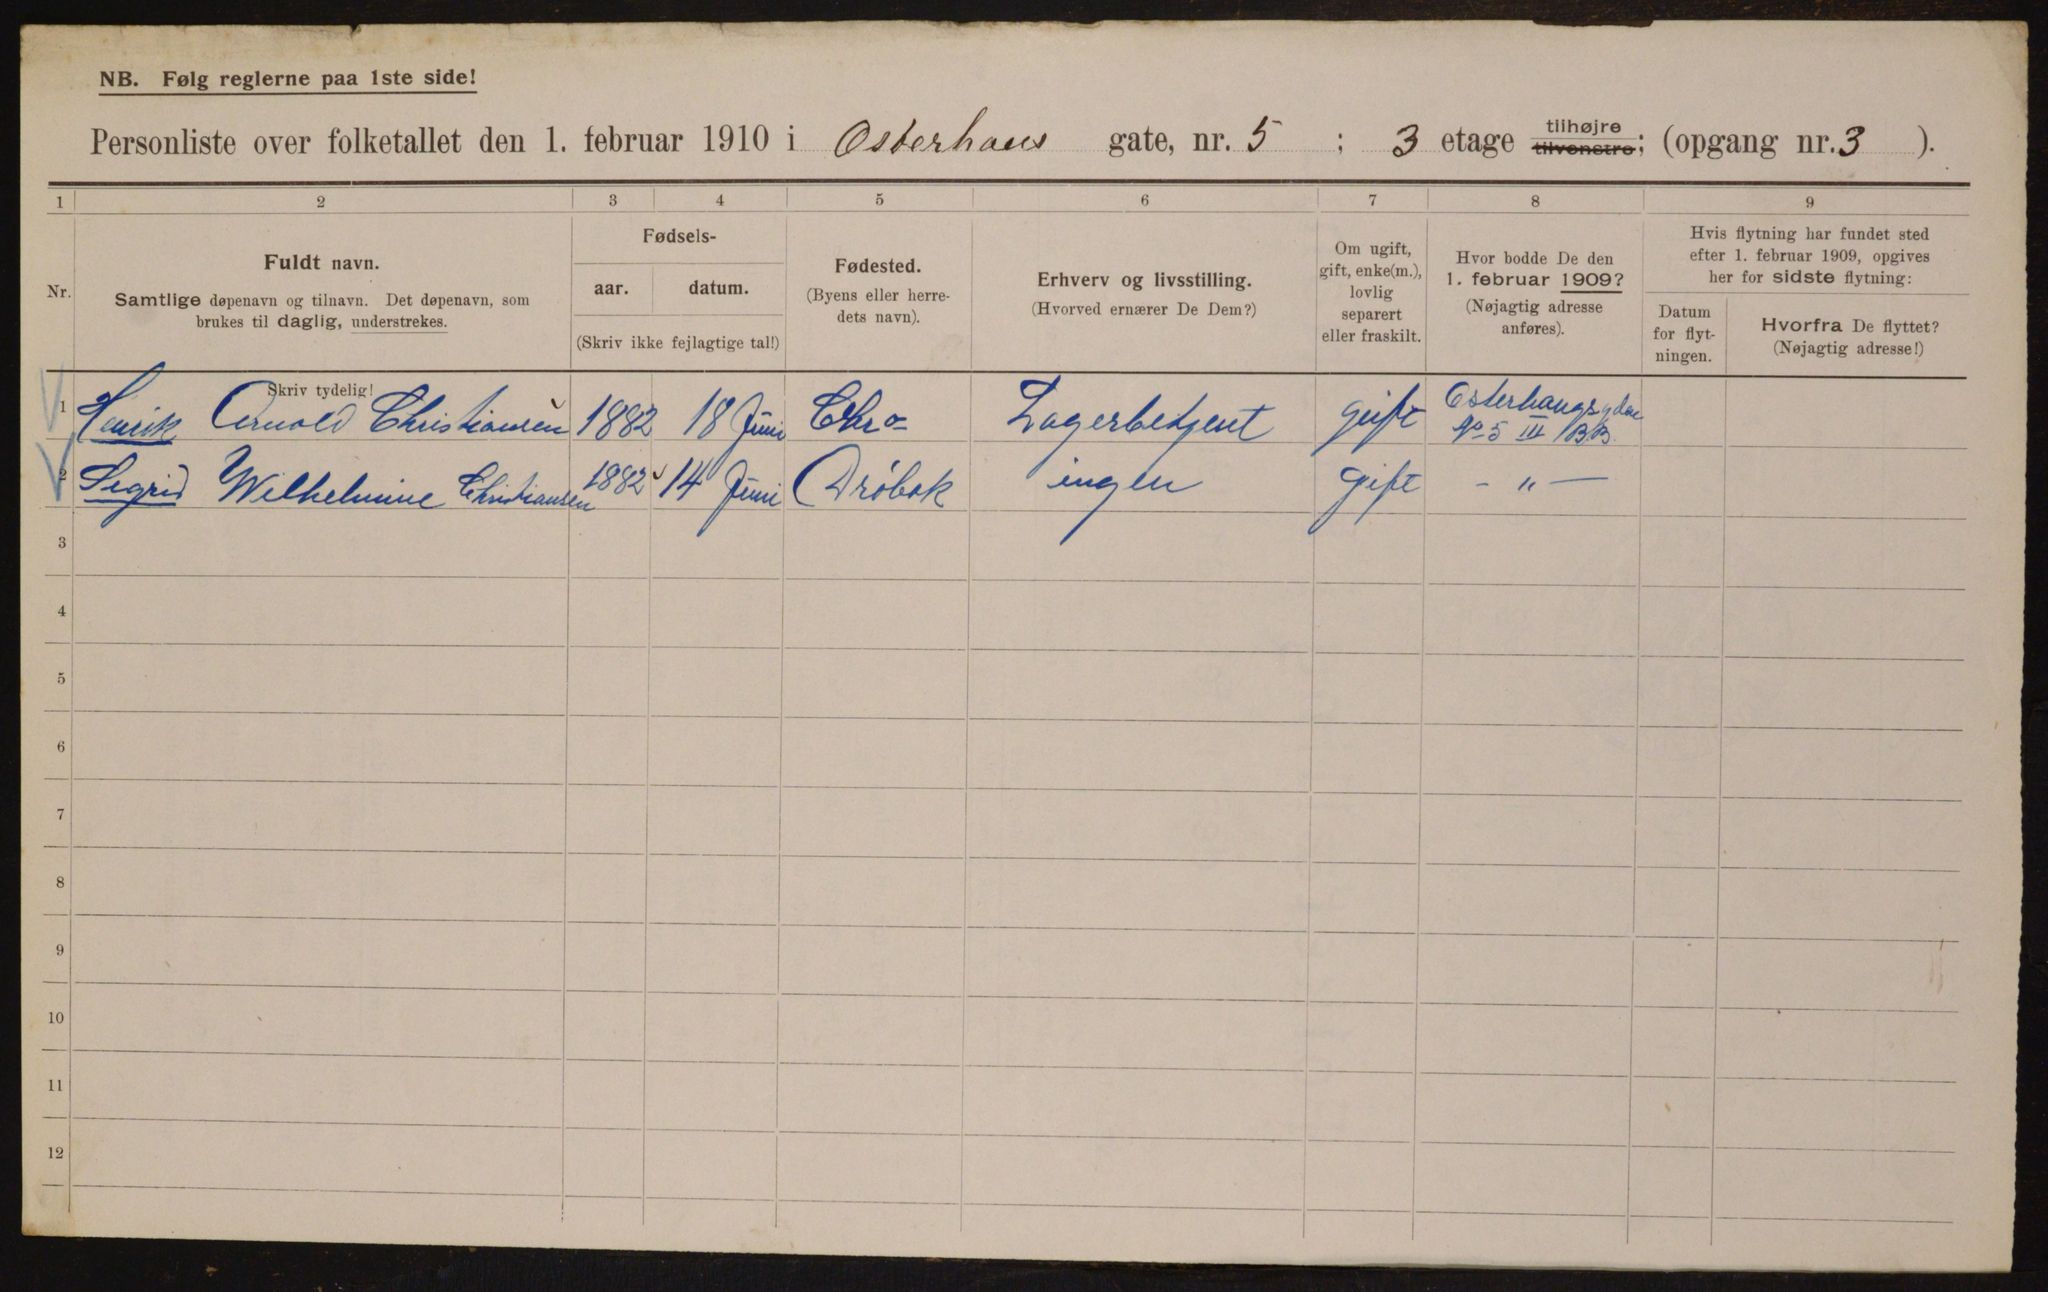 NB. Følg reglerne paa 1ste side!
Personliste over folketallet den 1. februar 1910 i Osterhaus gate, nr. 5 ; 3 etage tilhøjre tilvenstre; (opgang nr. 3 ).
1 2 3 4 5 6 7 8 9
Nr.
Fuldt navn.
Samtlige døpenavn og tilnavn. Det døpenavn, som
brukes til daglig, understrekes.
Fødsels-
aar. datum.
(Skriv ikke fejlagtige tal!)
Fødested.
(Byens eller herre-
dets navn).
Erhverv og livsstilling.
(Hvorved ernærer De Dem?)
Om ugift,
gift, enke(m.),
lovlig
separert
eller fraskilt.
Hvor bodde De den
1. februar 1909?
(Nøjagtig adresse
anføres).
Hvis flytning har fundet sted
efter 1. februar 1909, opgives
her for sidste flytning:
Datum
for flyt-
ningen.
Hvorfra De flyttet?
(Nøjagtig adresse!)
Skriv tydelig!
1 Henrik Arnold Christiansen 1882 18 Juni Chra Lagerbetjent gift Osterhausgden
No 5 III B.B.
2 Sigrid Wilhelmine Christiansen 1882 14 Juni Drøbak ingen gift - " -
3
4
5
6
7
8
9
10
11
12